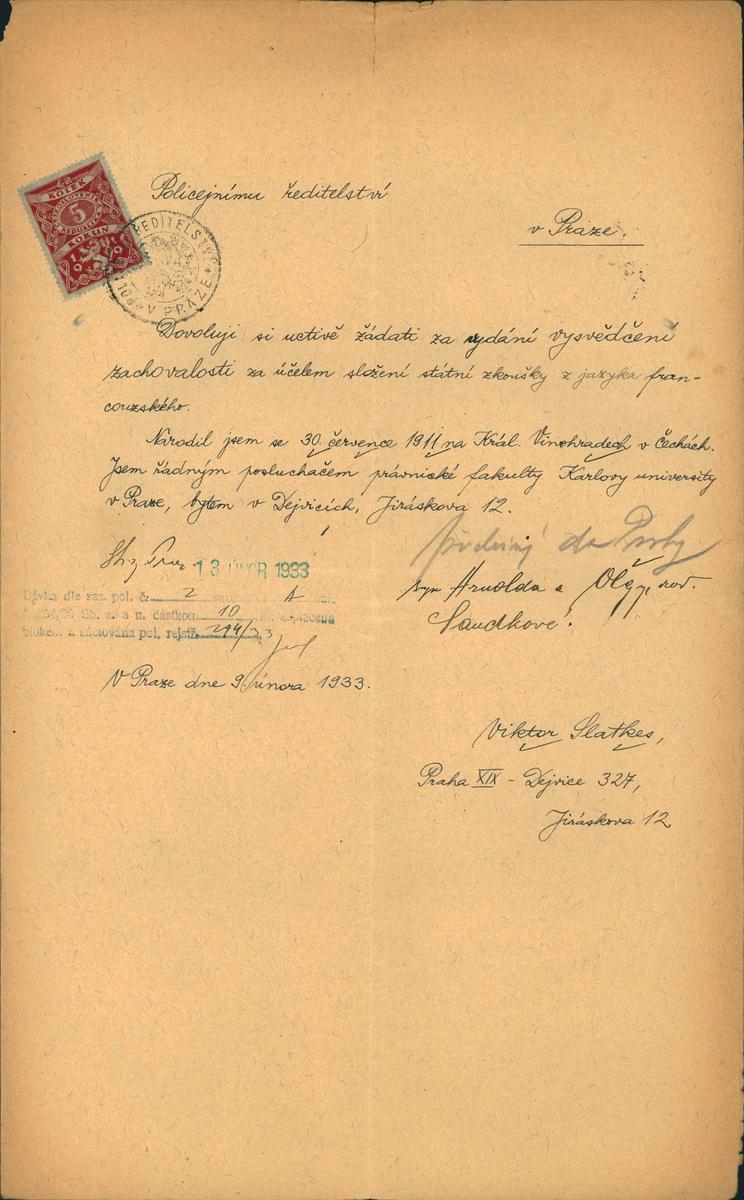 KOLEK
ČESKOSLOVENSKÁ
REPUBLIKA
5
KORUN
1919
ŘEDITELSTVÍ
V PRAZE
Policejnímu ředitelství
v Praze.
Dovoluji si uctivě žádati za vydání vysvědčení
zachovalosti za účelem složení státní zkoušky z jazyka fran-
couzského.
Narodil jsem se 30. července 1911 na Král. Vinohradech v Čechách.
Jsem řádným posluchačem právnické fakulty Karlovy university
v Praze, bytem v Dejvicích, Jiráskova 12.
13 ÚNOR 1933
syn Arnolda a Olgy, roz.
Saudkové.
Dávka dle saz. pol. č. 2 A
Sb. z. a n. částkou 10 zaplacena
blokem a súčtována pol. rejstř. 294/33
V Praze dne 9. února 1933.
Viktor Slatkes,
Praha XIX - Dejvice 327,
Jiráskova 12